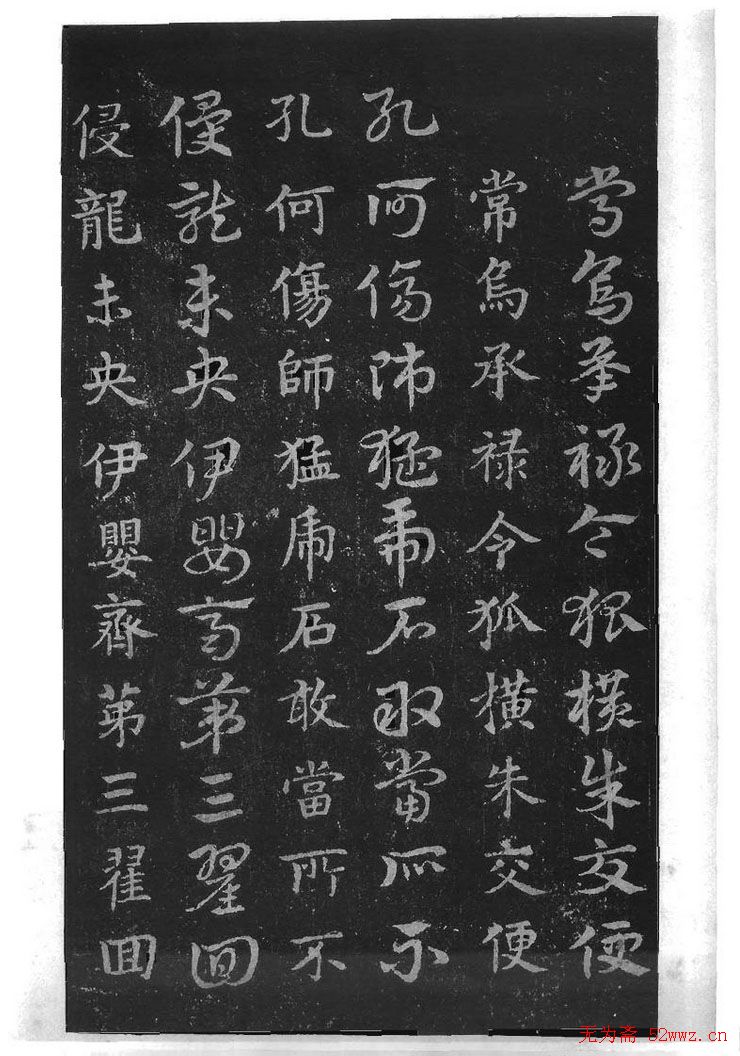 常烏承禄令狐橫朱交便
常烏承禄令狐橫朱交便
孔何傷師猛虎石敢當所不
孔何傷師猛虎石敢當所不
侵龍未央伊嬰齊苐三翟囬
侵龍未央伊嬰齊苐三翟囬
无为斋 52wwz.cn